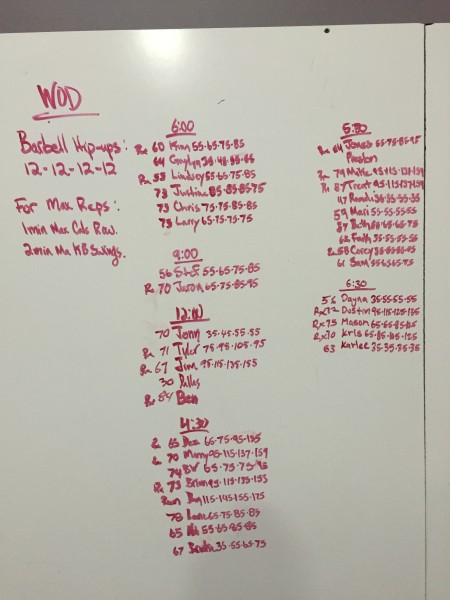 WOD
Barbell Hip-ups:
12-12-12-12
For Max Reps:
1min Max Cals Row.
2min Max KB Swings.
6:00
Rx 60 Kian 55-65-75-85
64
Rx 58 Lindsey 55-65-75-85
73 Justine
73 Chris 75-75-85-85
73 Larry 65-75-75-75
9:00
56 55-65-75-85
Rx 70 Jason 65-75-85-95
12:00
70 Jenn 35-45-55-55
Rx 71 Tyler 75-95-105-95
Rx 67 Jim 95-115-135-155
30 Dallas
Rx 84 Ben
4:30
65 Dez 65-75-95-135
70
74 BV 65-75-75-95
Rx 73 Brian 95-115-135-155
Run 115-145-155-175
78 Lane 65-75-85-85
65 55-65-85-85
67 35-55-65-75
5:30
Rx 64 Jones 55-75-85-95
Preston
Rx 79 Mike 95-115-137-159
Rx 87 Trent 95-115-137-159
47 Randi 35-35-35-35
59 Mari 55-55-55-55
87 Beth
62 Faith 55-55-55-55
Rx 58 Corey
61 Sam
6:30
56 Dayna 35-55-55-55
Rx 72 Dustin 95-115-125-135
Rx 75 Mason
Rx 70 Kris 65-85-105-125
63 Karlee 35-35-35-35